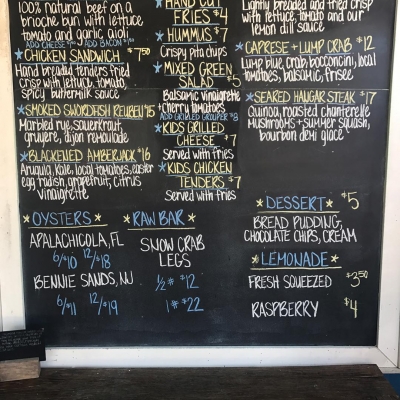 100% natural beef on a
brioche bun with lettuce
tomato and garlic aioli
ADD CHEESE $1 ADD BACON $1
CHICKEN SANDWICH $7.50
Hand breaded tenders fried
crisp with lettuce, tomato,
spicy buttermilk sauce
SMOKED SWORDFISH REUBEN $15
Marbled rye, sauerkraut,
gruyere, dijon remoulade
BLACKENED AMBERJACK $16
Arugula, kale, local tomatoes, easter
egg radish, grapefruit, citrus
vinaigrette
HAND CUT
FRIES $4
HUMMUS $7
Crispy pita chips
MIXED GREEN
SALAD $5
Balsamic Vinaigrette
+ Cherry tomatoes
ADD GRILLED GROUPER $8
KIDS GRILLED
CHEESE $7
Served with fries
KIDS CHICKEN
TENDERS $7
Served with fries
Lightly breaded and fried crisp
with lettuce, tomato and our
lemon dill sauce
CAPRESE + LUMP CRAB $12
Lump blue crab, bocconcini, local
tomatoes, balsamic, frisee
SEARED HANGAR STEAK $17
Quinoa, roasted chanterelle
mushrooms + summer squash,
bourbon demi glace
OYSTERS
APALACHICOLA, FL
6/$10 12/$18
BENNIE SANDS, NJ
6/$11 12/$19
RAW BAR
SNOW CRAB
LEGS
1/2# $12
1# $22
DESSERT $5
BREAD PUDDING,
CHOCOLATE CHIPS, CREAM
LEMONADE
FRESH SQUEEZED $3.50
RASPBERRY $4